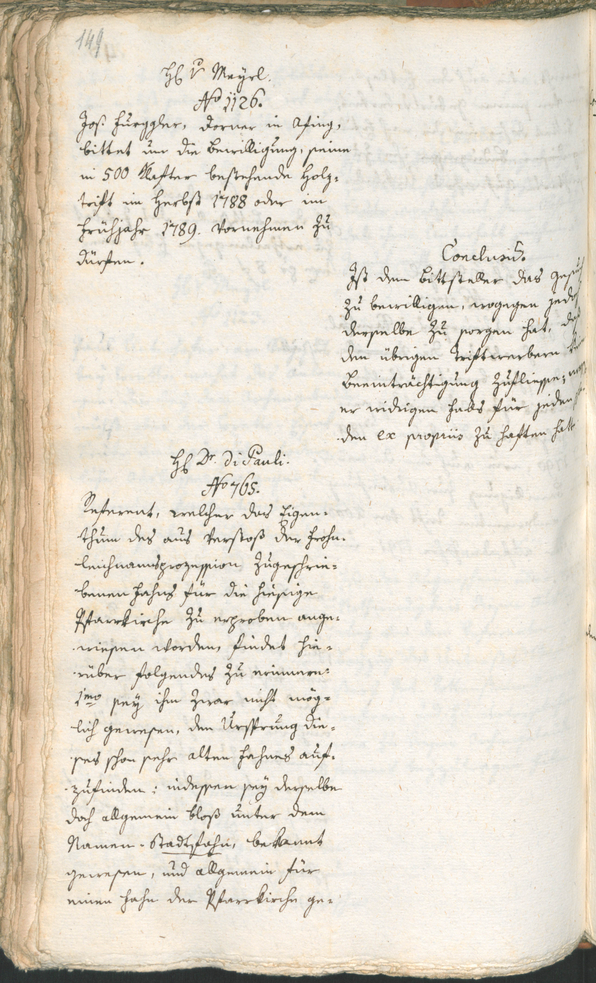 149
H. v Mayrl.
No 1126.
Jos. Furggler, Dorner in Afing,
bittet um die Bewilligung, seine
in 500 Klafter bestehende Holz-
trift im Herbst 1788 oder im
Frühjahr 1789. vornehmen zu
dürfen.
Conclusũ.
Ist dem Bittsteller das
zu bewilligen, wogegen
derselbe zu sorgen hat,
den übrigen Triftwerbern
Beeinträchtigung zufliesse,
er widrigen falls für jeden
den ex propriis zu haften hätte
H. Dr. di Pauli.
No 765.
Referent, welcher das Eigen-
thum des aus Verstoß der Frohn-
leichnamsprozession zugeschrie-
benen Fahns für die hiesige
Pfarrkirche zu erproben ange-
wiesen worden, findet hie-
rüber folgendes zu erinnern:
1mo sey ihm zwar nicht mög-
lich gewesen, den Ursprung die-
ses schon sehr alten Fahnes auf-
zufinden: indessen sey derselbe
doch allgemein bloß unter dem
Namen Stadtfahn, bekannt
gewesen, und allgemein für
einen Fahn der Pfarrkirche ge-